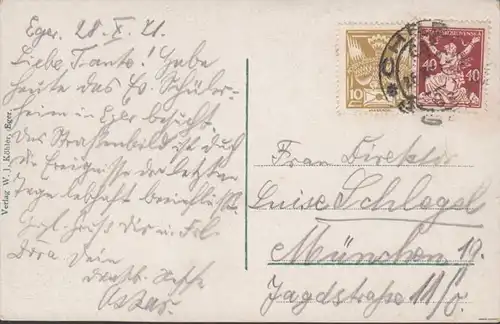 Eger, 28. X. 21.
Liebe Tante! Habe
heute das Ev. Schüler-
heim in Eger besucht
Das Straßenbild ist durch
die Ereignisse der letzten
Tage lebhaft beeinflußt.
Herzl. Grüße dir u. Frl.
Dora Dein
dankb. Neffe
Oskar.
Verlag W. J. Köhler, Eger.
CHEB
10
40 40
Frau Direktor
Luise Schlegel
München 19.
Jagdstraße